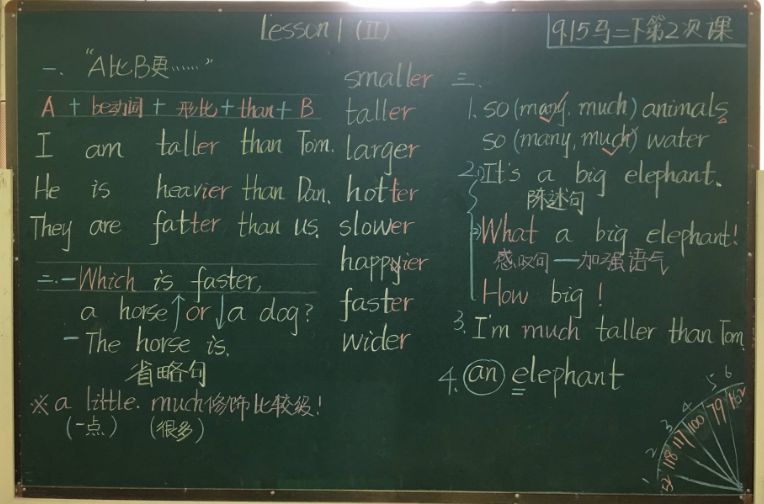 Lesson 1 (II)
9.15马二下第2次课
一. "A比B更……"
A + be动词 + 形比 + than + B
I am taller than Tom.
He is heavier than Dan.
They are fatter than us.
二. - Which is faster,
a horse ↑ or ↓ a dog?
- The horse is.
省略句
※ a little. much修饰比较级!
(一点) (很多)
smaller
taller
larger
hotter
slower
happyier
faster
wider
三.
1. so (many, much) animals
so (many, much) water
2. It's a big elephant.
陈述句
What a big elephant!
感叹句 — 加强语气
How big!
3. I'm much taller than Tom.
4. an elephant
1 2 3 4 5 6
118 117 100 79